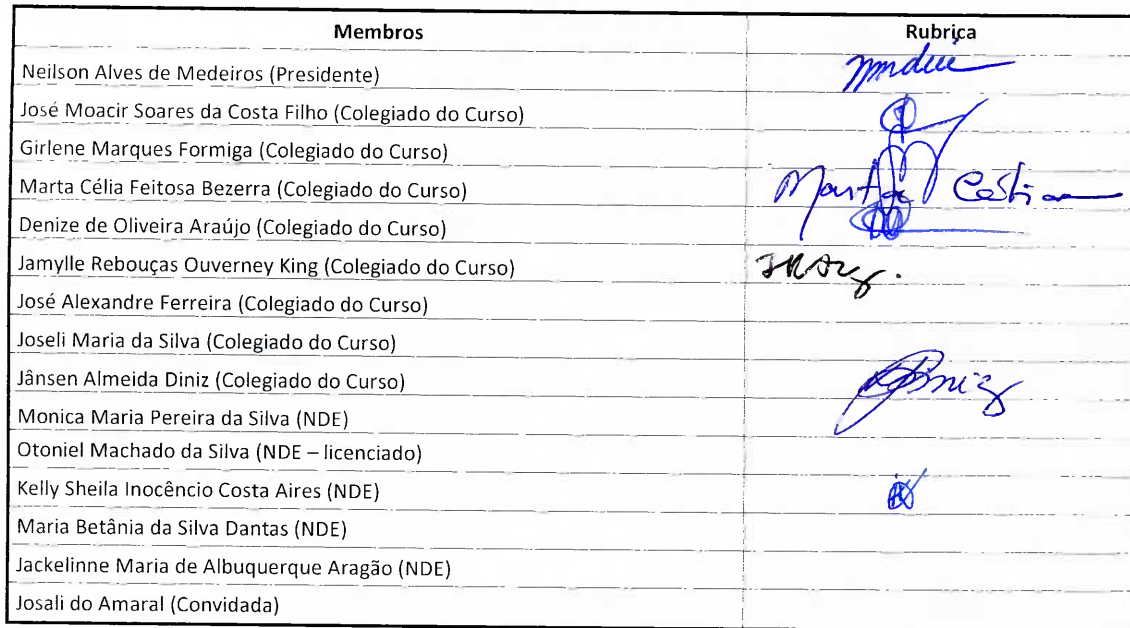 Membros Rubrica
Neilson Alves de Medeiros (Presidente)
José Moacir Soares da Costa Filho (Colegiado do Curso)
Girlene Marques Formiga (Colegiado do Curso)
Marta Célia Feitosa Bezerra (Colegiado do Curso) Marta Célia
Denize de Oliveira Araújo (Colegiado do Curso)
Jamylle Rebouças Ouverney King (Colegiado do Curso)
José Alexandre Ferreira (Colegiado do Curso)
Joseli Maria da Silva (Colegiado do Curso)
Jânsen Almeida Diniz (Colegiado do Curso) Diniz
Monica Maria Pereira da Silva (NDE)
Otoniel Machado da Silva (NDE – licenciado)
Kelly Sheila Inocêncio Costa Aires (NDE)
Maria Betânia da Silva Dantas (NDE)
Jackelinne Maria de Albuquerque Aragão (NDE)
Josali do Amaral (Convidada)